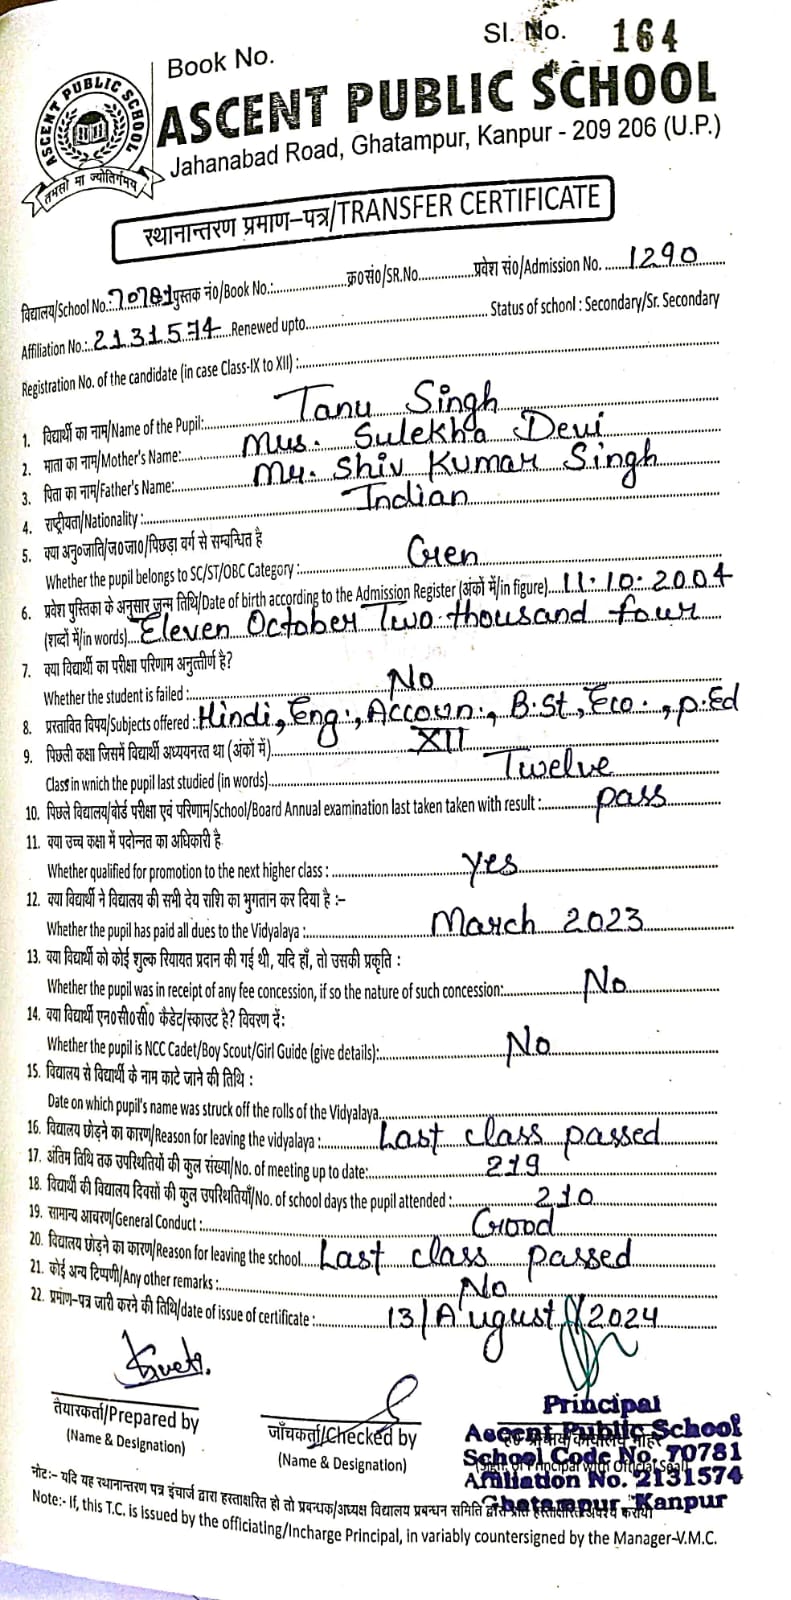 Book No.
Sl. No. 164
ASCENT PUBLIC SCHOOL
ASCENT PUBLIC SCHOOL
तमसो मा ज्योतिर्गमय
Jahanabad Road, Ghatampur, Kanpur - 209 206 (U.P.)
स्थानान्तरण प्रमाण-पत्र/TRANSFER CERTIFICATE
विद्यालय/School No.: 70781 पुस्तक नं०/Book No.:............ क्र०सं०/SR.No............ प्रवेश सं०/Admission No. ......1290......
Affiliation No.:..2131574 Renewed upto............ Status of school : Secondary/Sr. Secondary
Registration No. of the candidate (in case Class-IX to XII) :............
1. विद्यार्थी का नाम/Name of the Pupil:............ Tanu Singh
2. माता का नाम/Mother's Name:............ Mrs. Sulekha Devi
3. पिता का नाम/Father's Name:............ Mr. Shiv Kumar Singh
4. राष्ट्रीयता/Nationality :............ Indian
5. क्या अनु०जाति/ज०जा०/पिछड़ा वर्ग से सम्बन्धित है
Whether the pupil belongs to SC/ST/OBC Category :............ Gen
6. प्रवेश पुस्तिका के अनुसार जन्म तिथि/Date of birth according to the Admission Register (अंकों में/in figure)....11.10.2004
(शब्दों में/in words)....Eleven October Two thousand four
7. क्या विद्यार्थी का परीक्षा परिणाम अनुत्तीर्ण है?
Whether the student is failed :............ No
8. प्रस्तावित विषय/Subjects offered : Hindi, Eng., Accoun., B.St, Eco., P.Ed
9. पिछली कक्षा जिसमें विद्यार्थी अध्ययनरत था (अंकों में)............ XII
Class in wnich the pupil last studied (in words)............ Twelve
10. पिछले विद्यालय/बोर्ड परीक्षा एवं परिणाम/School/Board Annual examination last taken taken with result :............ pass
11. क्या उच्च कक्षा में पदोन्नत का अधिकारी है
Whether qualified for promotion to the next higher class :............ yes
12. क्या विद्यार्थी ने विद्यालय की सभी देय राशि का भुगतान कर दिया है :–
Whether the pupil has paid all dues to the Vidyalaya :............ March 2023
13. क्या विद्यार्थी को कोई शुल्क रियायत प्रदान की गई थी, यदि हाँ, तो उसकी प्रकृति :
Whether the pupil was in receipt of any fee concession, if so the nature of such concession:............ No
14. क्या विद्यार्थी एन०सी०सी० कैडेट/स्काउट है? विवरण दें:
Whether the pupil is NCC Cadet/Boy Scout/Girl Guide (give details):............ No
15. विद्यालय से विद्यार्थी के नाम काटे जाने की तिथि :
Date on which pupil's name was struck off the rolls of the Vidyalaya............
16. विद्यालय छोड़ने का कारण/Reason for leaving the vidyalaya :............ Last class passed
17. अंतिम तिथि तक उपस्थितियों की कुल संख्या/No. of meeting up to date:............ 219
18. विद्यार्थी की विद्यालय दिवसों की कुल उपस्थितियाँ/No. of school days the pupil attended :............ 210
19. सामान्य आचरण/General Conduct :............ Good
20. विद्यालय छोड़ने का कारण/Reason for leaving the school.... Last class passed
21. कोई अन्य टिप्पणी/Any other remarks :............ No
22. प्रमाण-पत्र जारी करने की तिथि/date of issue of certificate :............ 13/August/2024
तैयारकर्ता/Prepared by
(Name & Designation)
जाँचकर्ता/Checked by
(Name & Designation)
Principal
Ascent Public School
School Code No. 70781
Affiliation No. 2131574
Ghatampur, Kanpur
नोट:- यदि यह स्थानान्तरण पत्र इंचार्ज द्वारा हस्ताक्षरित हो तो प्रबन्धक/अध्यक्ष विद्यालय प्रबन्धन समिति
Note:- If, this T.C. is issued by the officiating/Incharge Principal, in variably countersigned by the Manager-V.M.C.